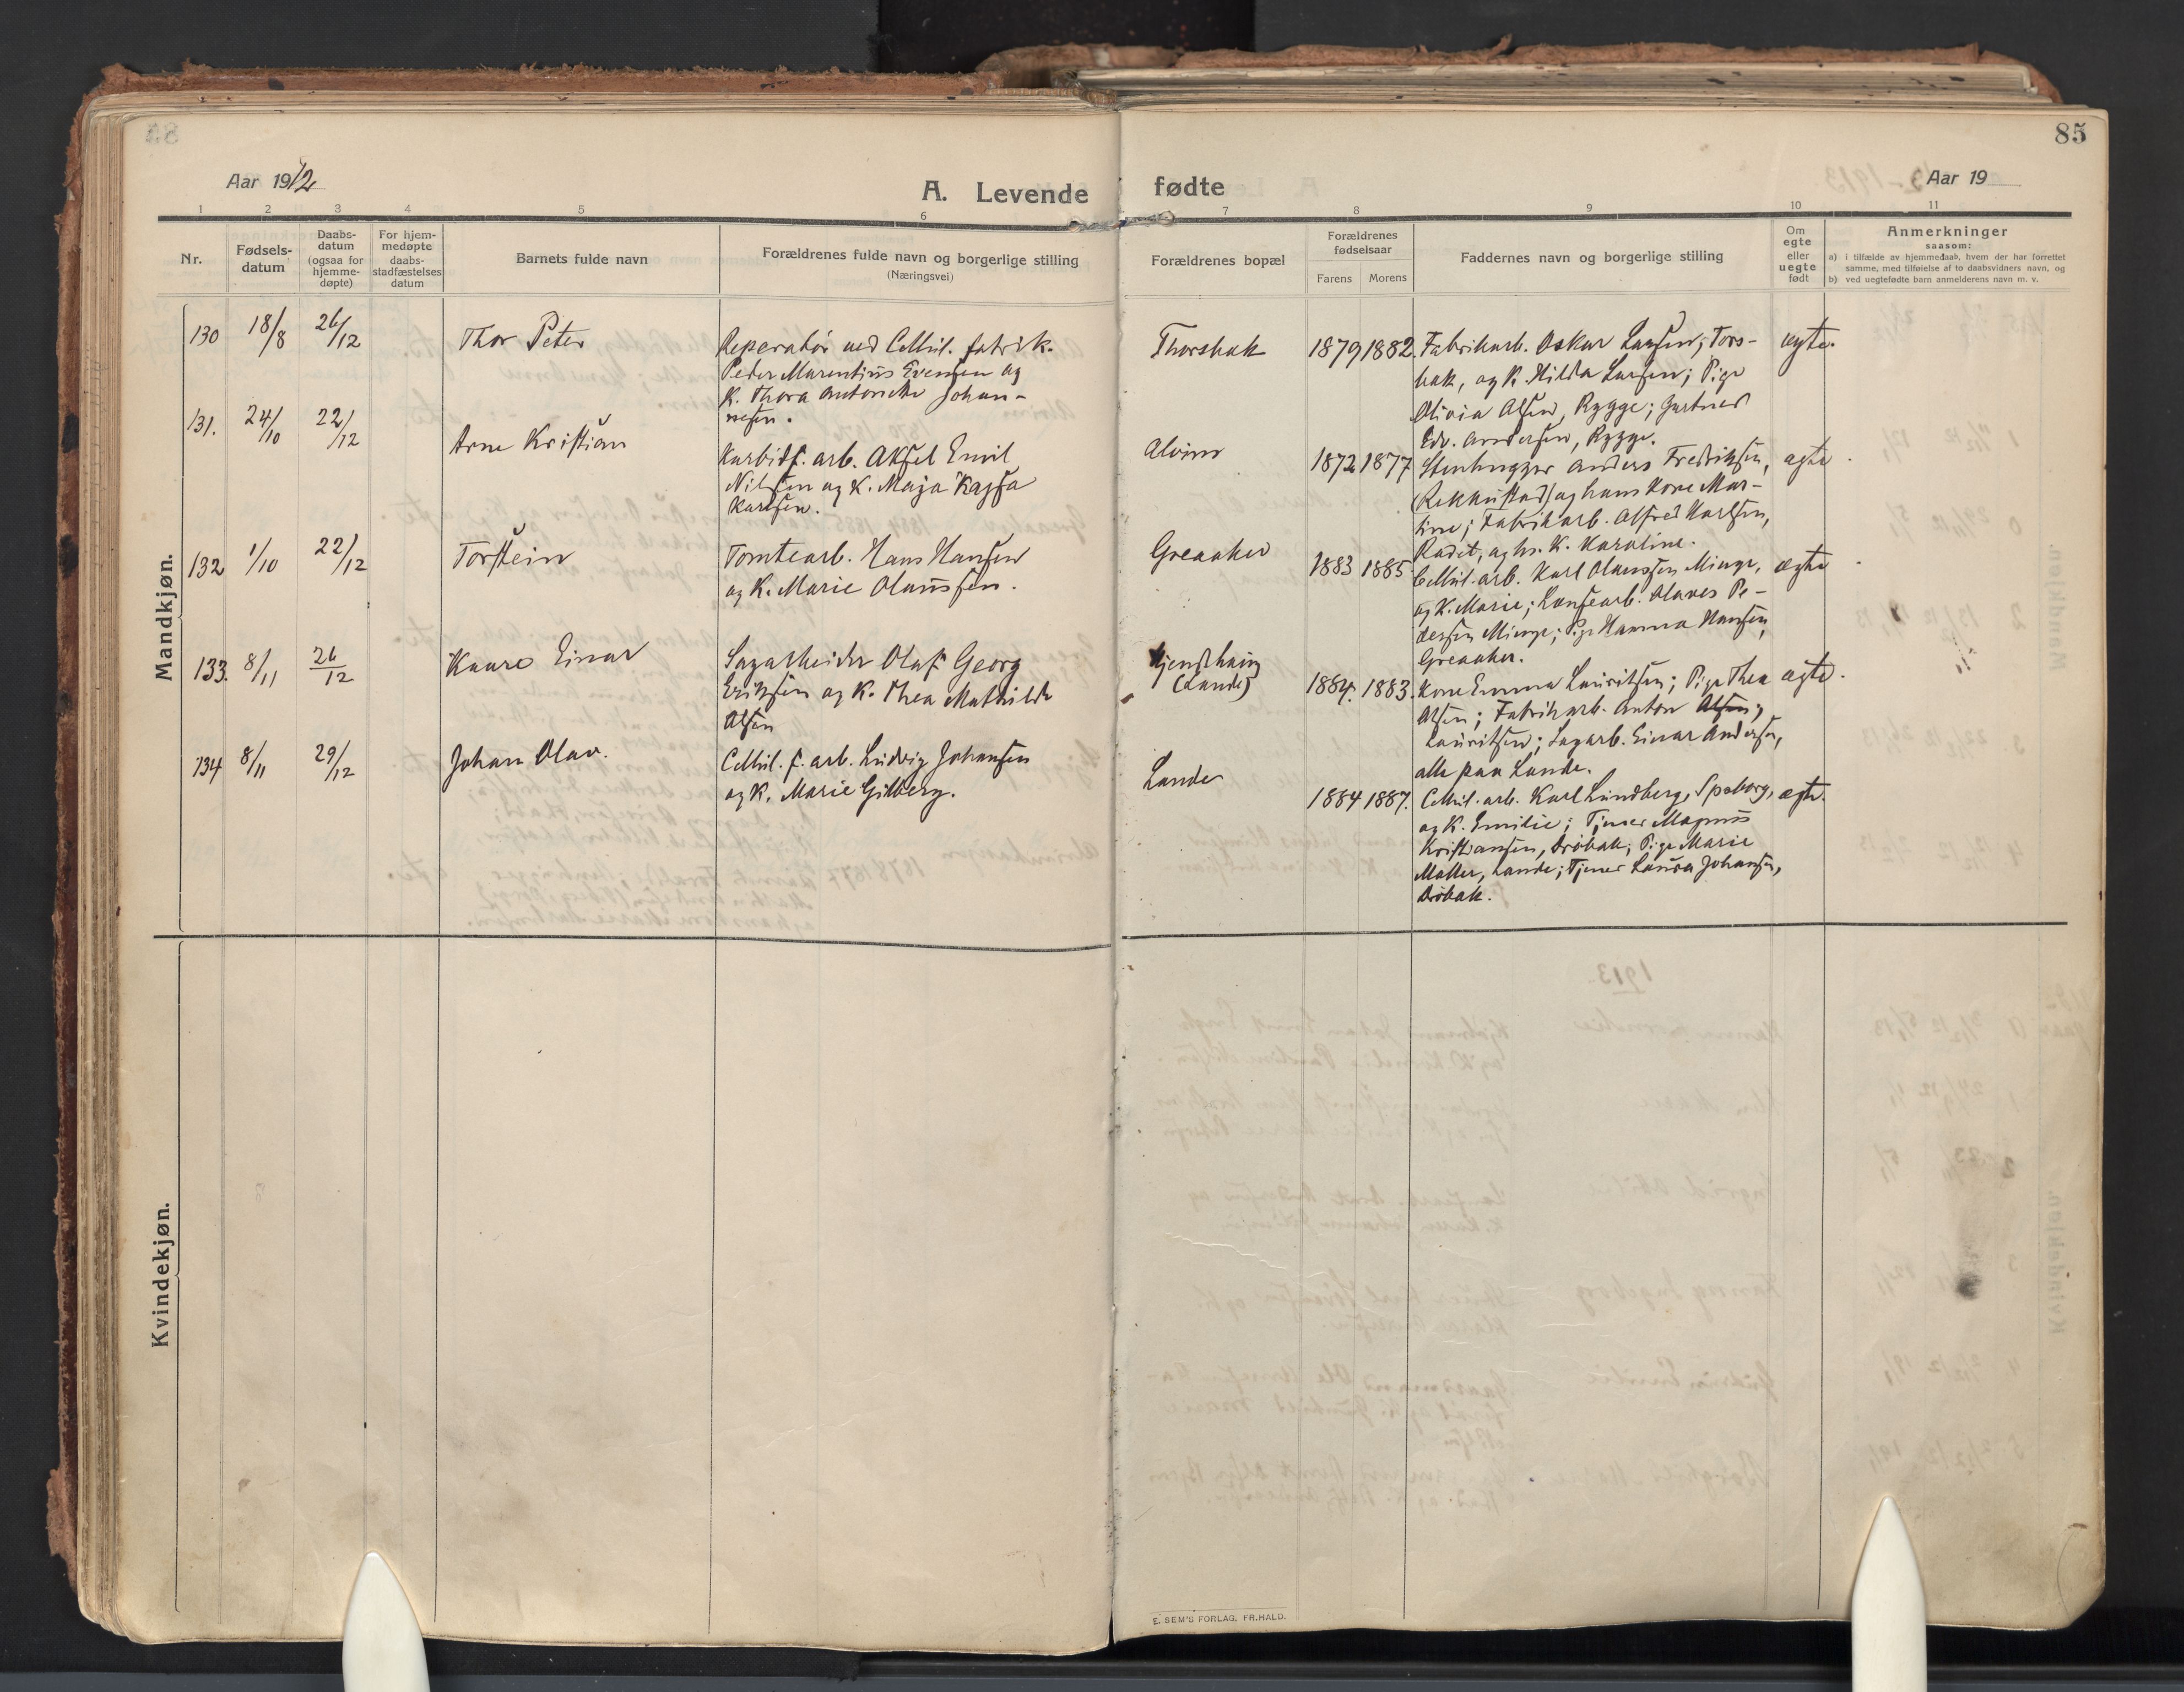 85
Aar 1912
A. Levende fødte
Aar 19
1 2 3 4 5 6 7 8 9 10 11
Nr.
Fødsels-
datum
Daabs-
datum
(ogsaa for
hjemme-
døpte)
For hjem-
medøpte
daabs-
stadfæstelses
datum
Barnets fulde navn
Forældrenes fulde navn og borgerlige stilling
(Næringsvei)
Forældrenes bopæl
Forældrenes
fødselsaar
Farens Morens
Faddernes navn og borgerlige stilling
Om
egte
eller
uegte
født
Anmerkninger
saasom:
a) i tilfælde av hjemmedaab, hvem der har forrettet
samme, med tilføielse af to daabsvidners navn, og
b) ved uegtefødte barn anmelderens navn m. v.
Mandkjøn.
130 18/8 26/12 Thor Peter
Reperatør ved Cellul. fabrik.
Peder Marentius Evensen og
K. Thora Antonette Johan-
nesen.
Thorsbak 1879 1882.
Fabrikarb. Oskar Larsen, Tors-
bak, og K. Hilda Larsen; Pige
Olivia Olsen, Rygge; Gartner
Edv. Andersen, Rygge.
egte.
131. 24/10 22/12 Arne Kristian
Karbidf. arb. Aksel Emil
Nilsen og K. Maja Kajsa
Karlsen.
Alvim 1872 1877
Stenhugger Anders Fredriksen,
(Rekkustad) og hans Kone Mar-
tine; Fabrikarb. Alfred Karlsen,
Radet, og hs. K. Karoline.
egte
132 1/10 22/12 Torstein
Tomtearb. Hans Hansen
og K. Marie Olaussen.
Greaaker 1883 1885.
Cellul. arb. Karl Olaussen Minge,
og K. Marie; Lænsearb. Olaves Pe-
dersen Minge; Pige Hanna Hansen,
Greaaker.
egte
133. 8/11 26/12 Kaare Einar
Sagarbeider Olaf Georg
Eriksen og K. Thea Mathilde
Olsen
(Lande) 1884. 1883.
Kone Emma Lauritsen; Pige Thea
Olsen; Fabrikarb. Anton Olsen;
Lauritsen; Sagarb. Einar Andersen,
alle paa Lande.
egte.
134 8/11 29/12 Johan Olav.
Cellul. f. arb. Ludvig Johansen
og K. Marie Gilberg.
Lande 1884 1887.
Cellul. arb. Karl Lundberg, Spaborg,
og K. Emilie; Tjener Magnus
Kristiansen, Drøbak; Pige Marie
Møller, Lande; Tjener Laura Johansen,
Drøbak.
egte.
Kvindekjøn.
E. SEM'S FORLAG, FR.HALD.